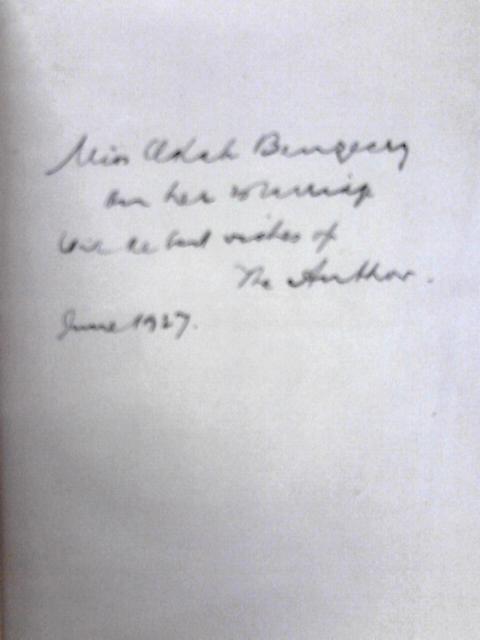 Miss Adah
on her Marriage
with the best wishes of
The Author.
June 1927.